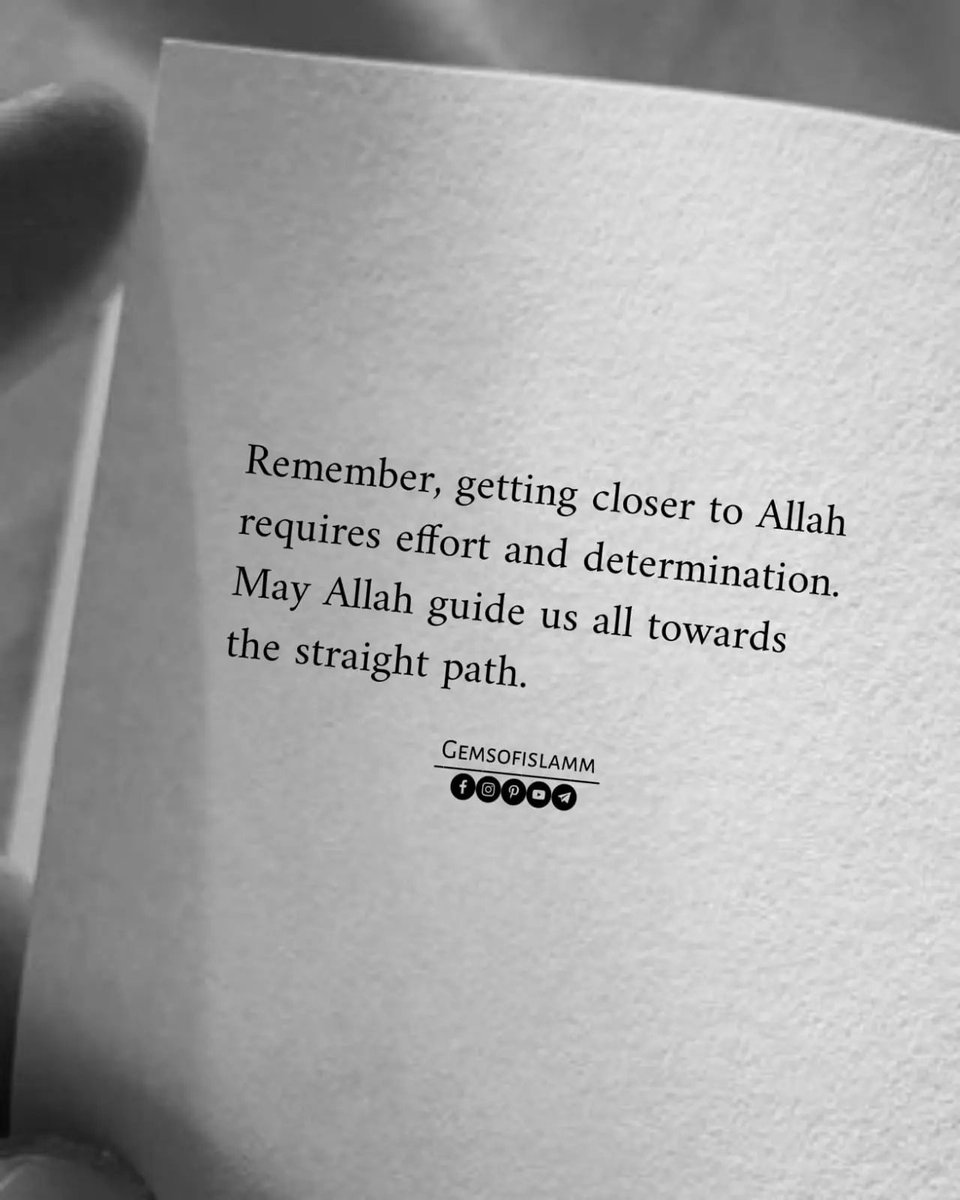 Remember, getting closer to Allah
requires effort and determination.
May Allah guide us all towards
the straight path.
GEMSOFISLAMM